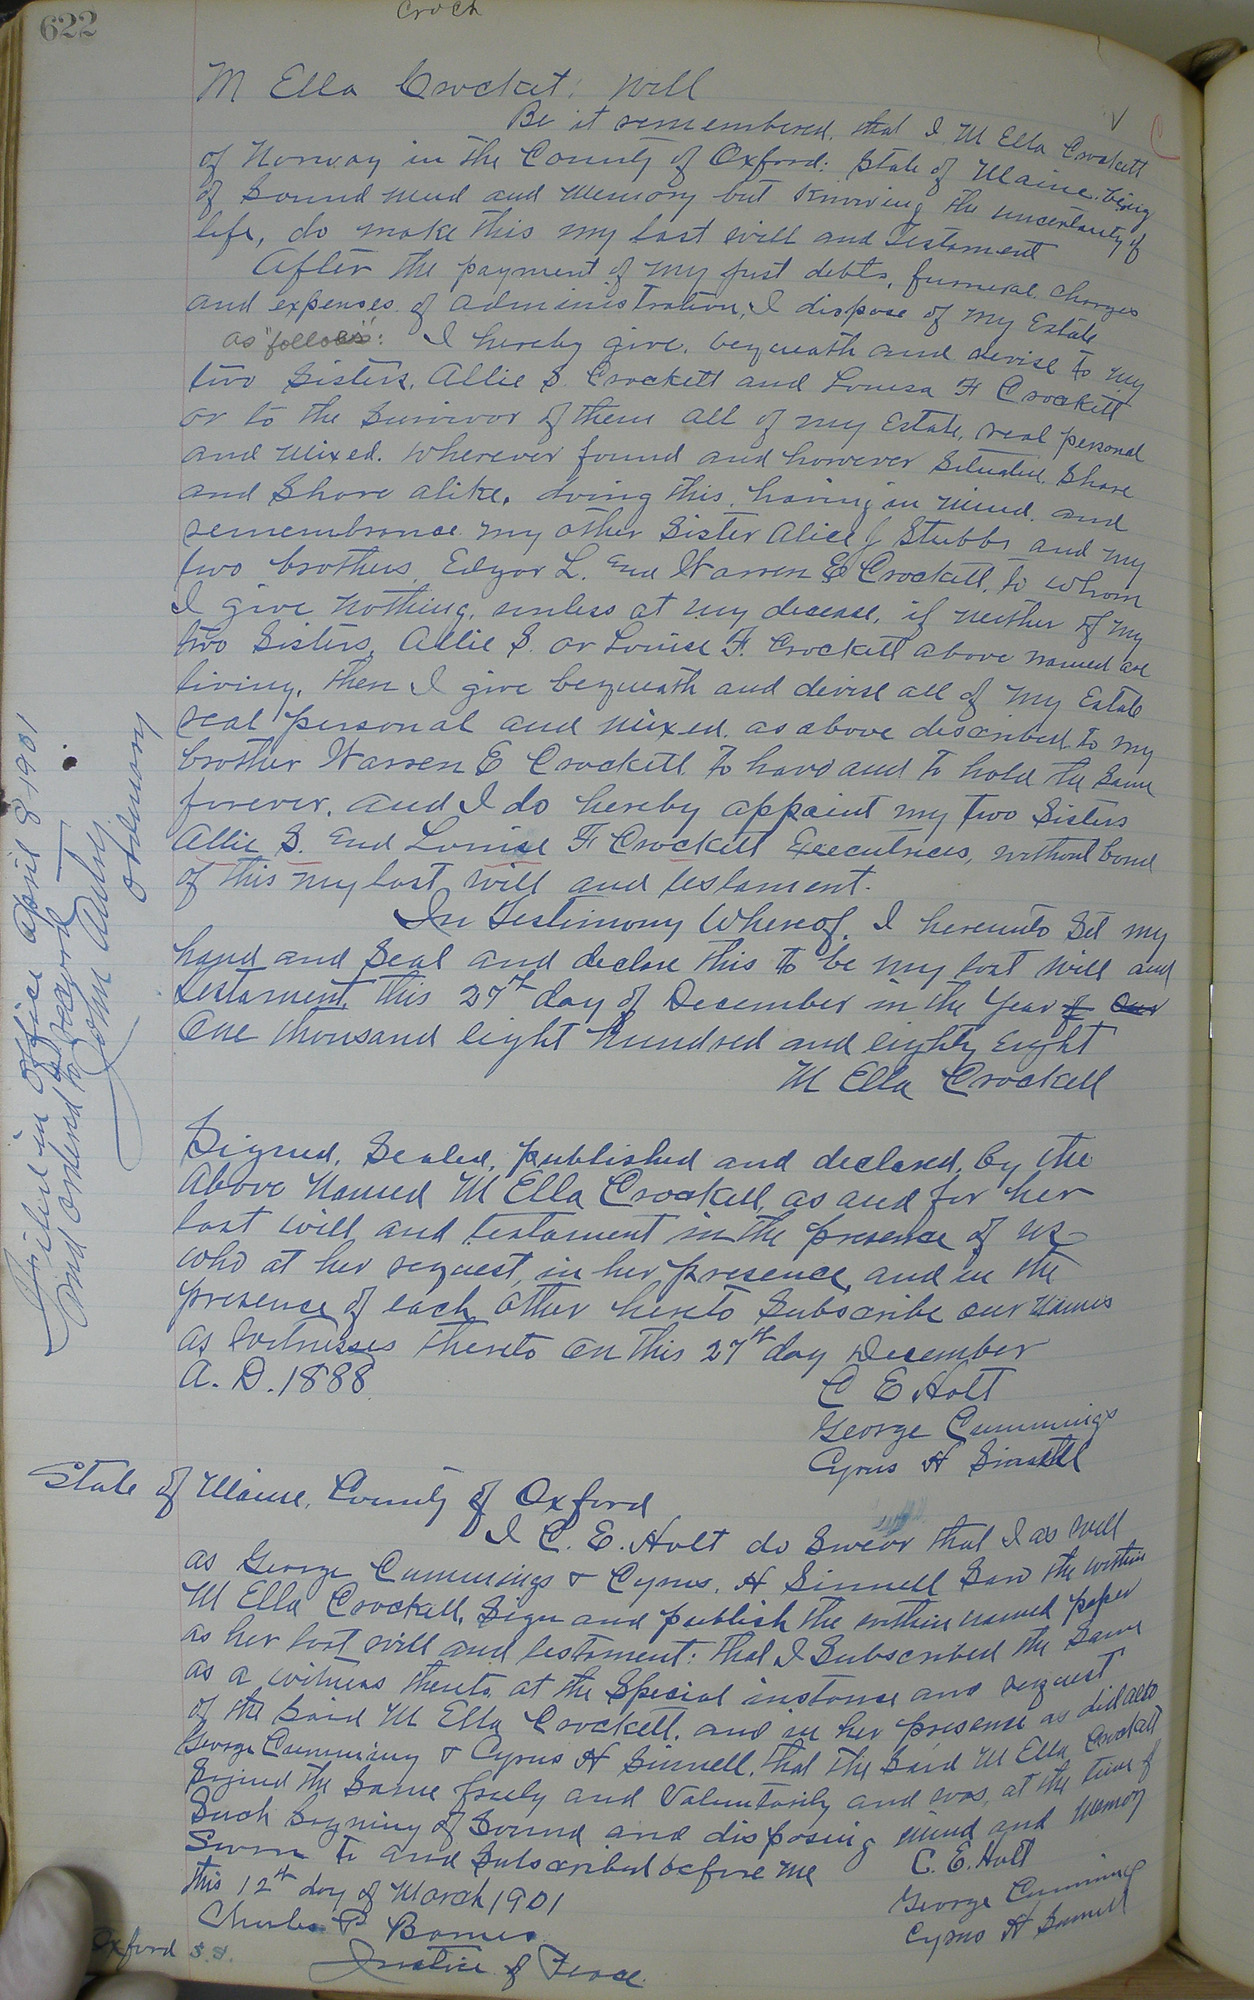 622
Croch
M Ella Crockett: Will
Be it remembered, that I M Ella Crockett
of Norway in the County of Oxford: State of Maine. being
of Sound mind and Memory but Knowing the uncertainty of
life, do make this my last will and Testament
After the payment of my just debts, funeral charges
and expenses of administration, I dispose of my Estate
as "follows": I hereby give, bequeath and devise to my
two Sisters, Allie S. Crockett and Louisa F Crockett
or to the Survivor of them all of my Estate, real personal
and mixed. wherever found and however Situated, Share
and Share alike, doing this, having in mind, and
remembrance my other Sister Alice J Stubbs and my
two brothers, Edgar L. and Warren E Crockett, to whom
I give nothing, unless at my decease, if neither of my
two Sisters, Allie S. or Louise F. Crockett above named are
living, then I give bequeath and devise all of my Estate
real personal and mixed, as above described to my
brother Warren E Crockett to have and to hold the Same
forever. and I do hereby appoint my two Sisters
Allie S. and Louise F Crockett Executrices, without bond
of this my last will and testament.
In Testimony Whereof, I hereunto Set my
hand and Seal and declare this to be my last will and
testament, this 27th day of December in the Year of Our
One thousand eight hundred and eighty Eight
M Ella Crockett
Signed, Sealed, published and declared, by the
above Named M Ella Crockett, as and for her
last will and testament in the presence of us
who at her request, in her presence, and in the
presence of each other hereto Subscribe our Names
as witnesses thereto on this 27th day December
A. D. 1888
C E. Holt
George Cummings
Cyrus H Sinnell
State of Maine, County of Oxford
I C. E. Holt do Swear that I as well
as George Cummings & Cyrus. H Sinnell Saw the within
M Ella Crockett, Sign and publish the within named paper
as her last will and testament: that I Subscribed the Same
as a witness thereto, at the Special instance and request
of the Said M Ella Crockett. and in her presence as did also
George Cumming & Cyrus H Sinnell. that the Said M Ella Crockett
Signed the Same freely and Voluntarily and was, at the time of
Such Signing of Sound and disposing mind and Memory
Sworn to and Subscribed before me
C. E. Holt
this 12th day of March 1901
George Cumming
Charles P Barnes
Cyrus H Sinnell
Oxford S.S.
Justice of Peace
Filed in office April 8 1901
and ordered to Record
John Ordinary